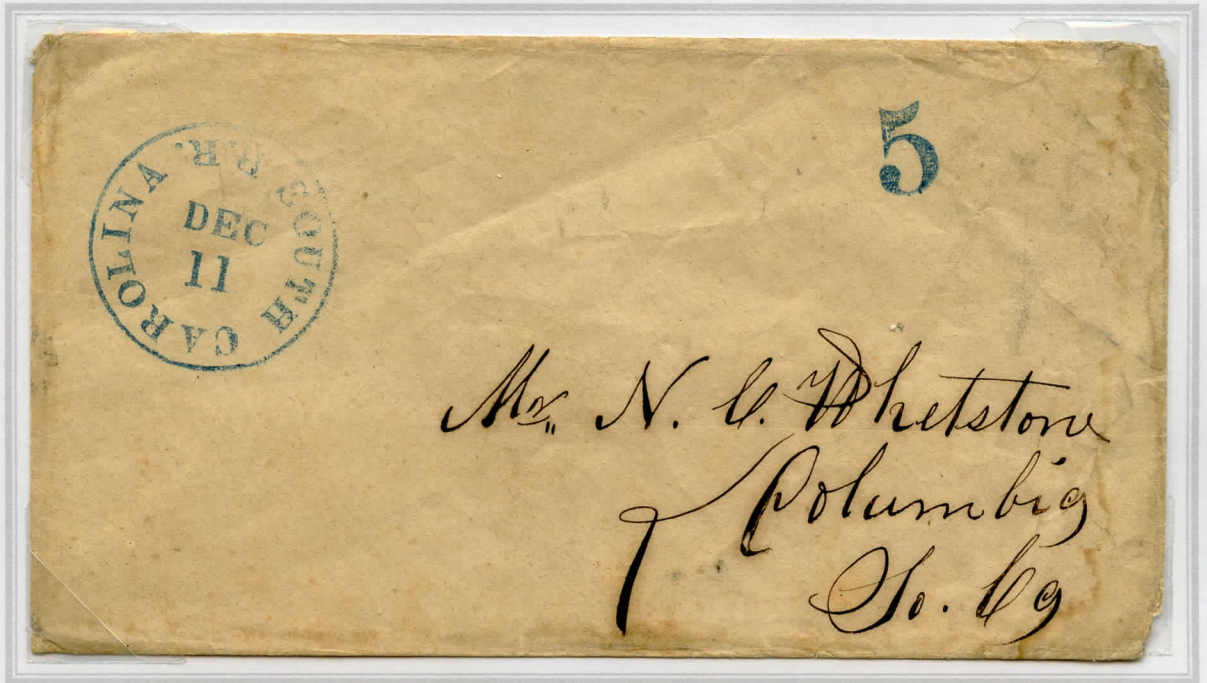 SOUTH CAROLINA. R.R.
DEC
11
5
Mr. N. C. Whetstone
Columbia
So. Ca